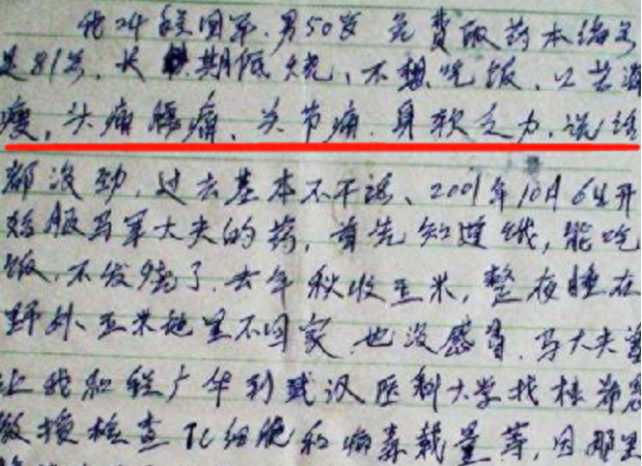 我24程国富.男50岁 免费取药本编号
是81号.长期低烧、不想吃饭、口苦消
瘦,头痛腰痛、关节痛.身软乏力.说话
都没劲,过去基本不干活、2001年10月6号开
始服马军大夫的药,首先知道饿,能吃
饭,不发烧了.去年秋收玉米,整夜睡在
野外、玉米地里不回家.也没感冒.马大夫曾
让我和程广华到武汉医科大学找桂希恩
做抽检查Tc细胞和病毒载量等,因那里